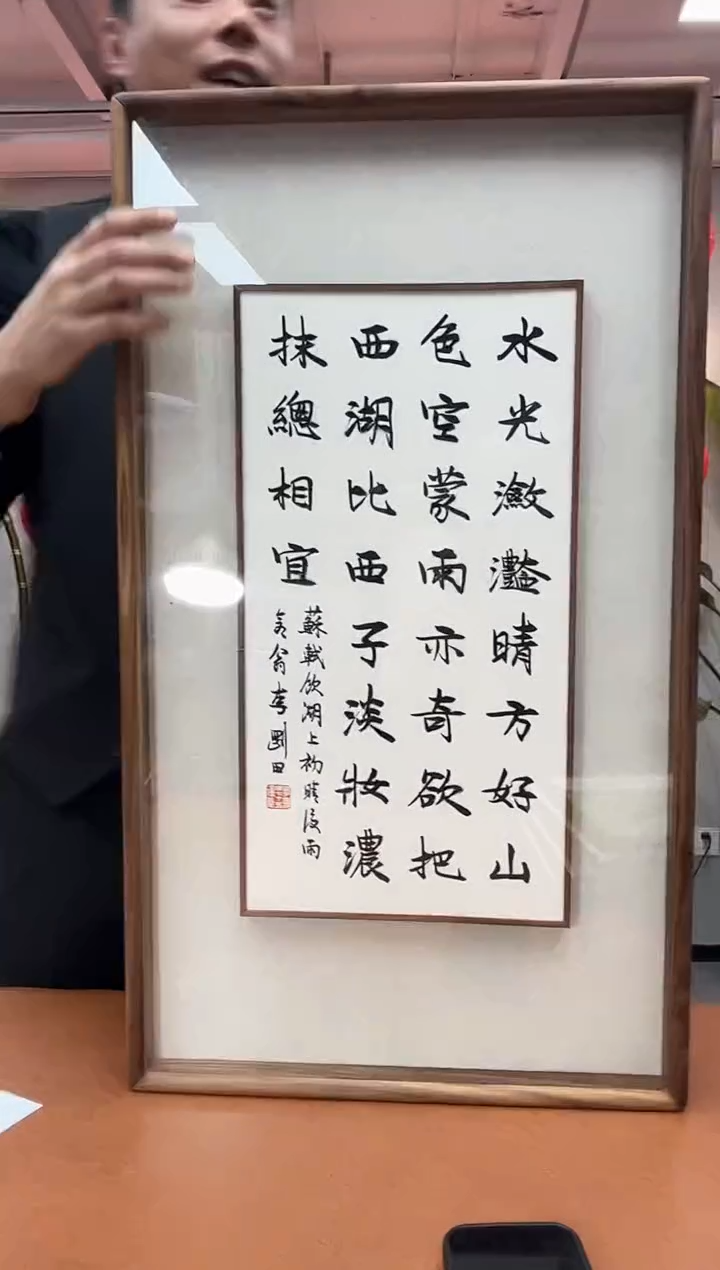 水光瀲灩晴方好山
色空蒙雨亦奇欲把
西湖比西子淡妝濃
抹總相宜
蘇軾飲湖上初晴後雨
翁李剛田